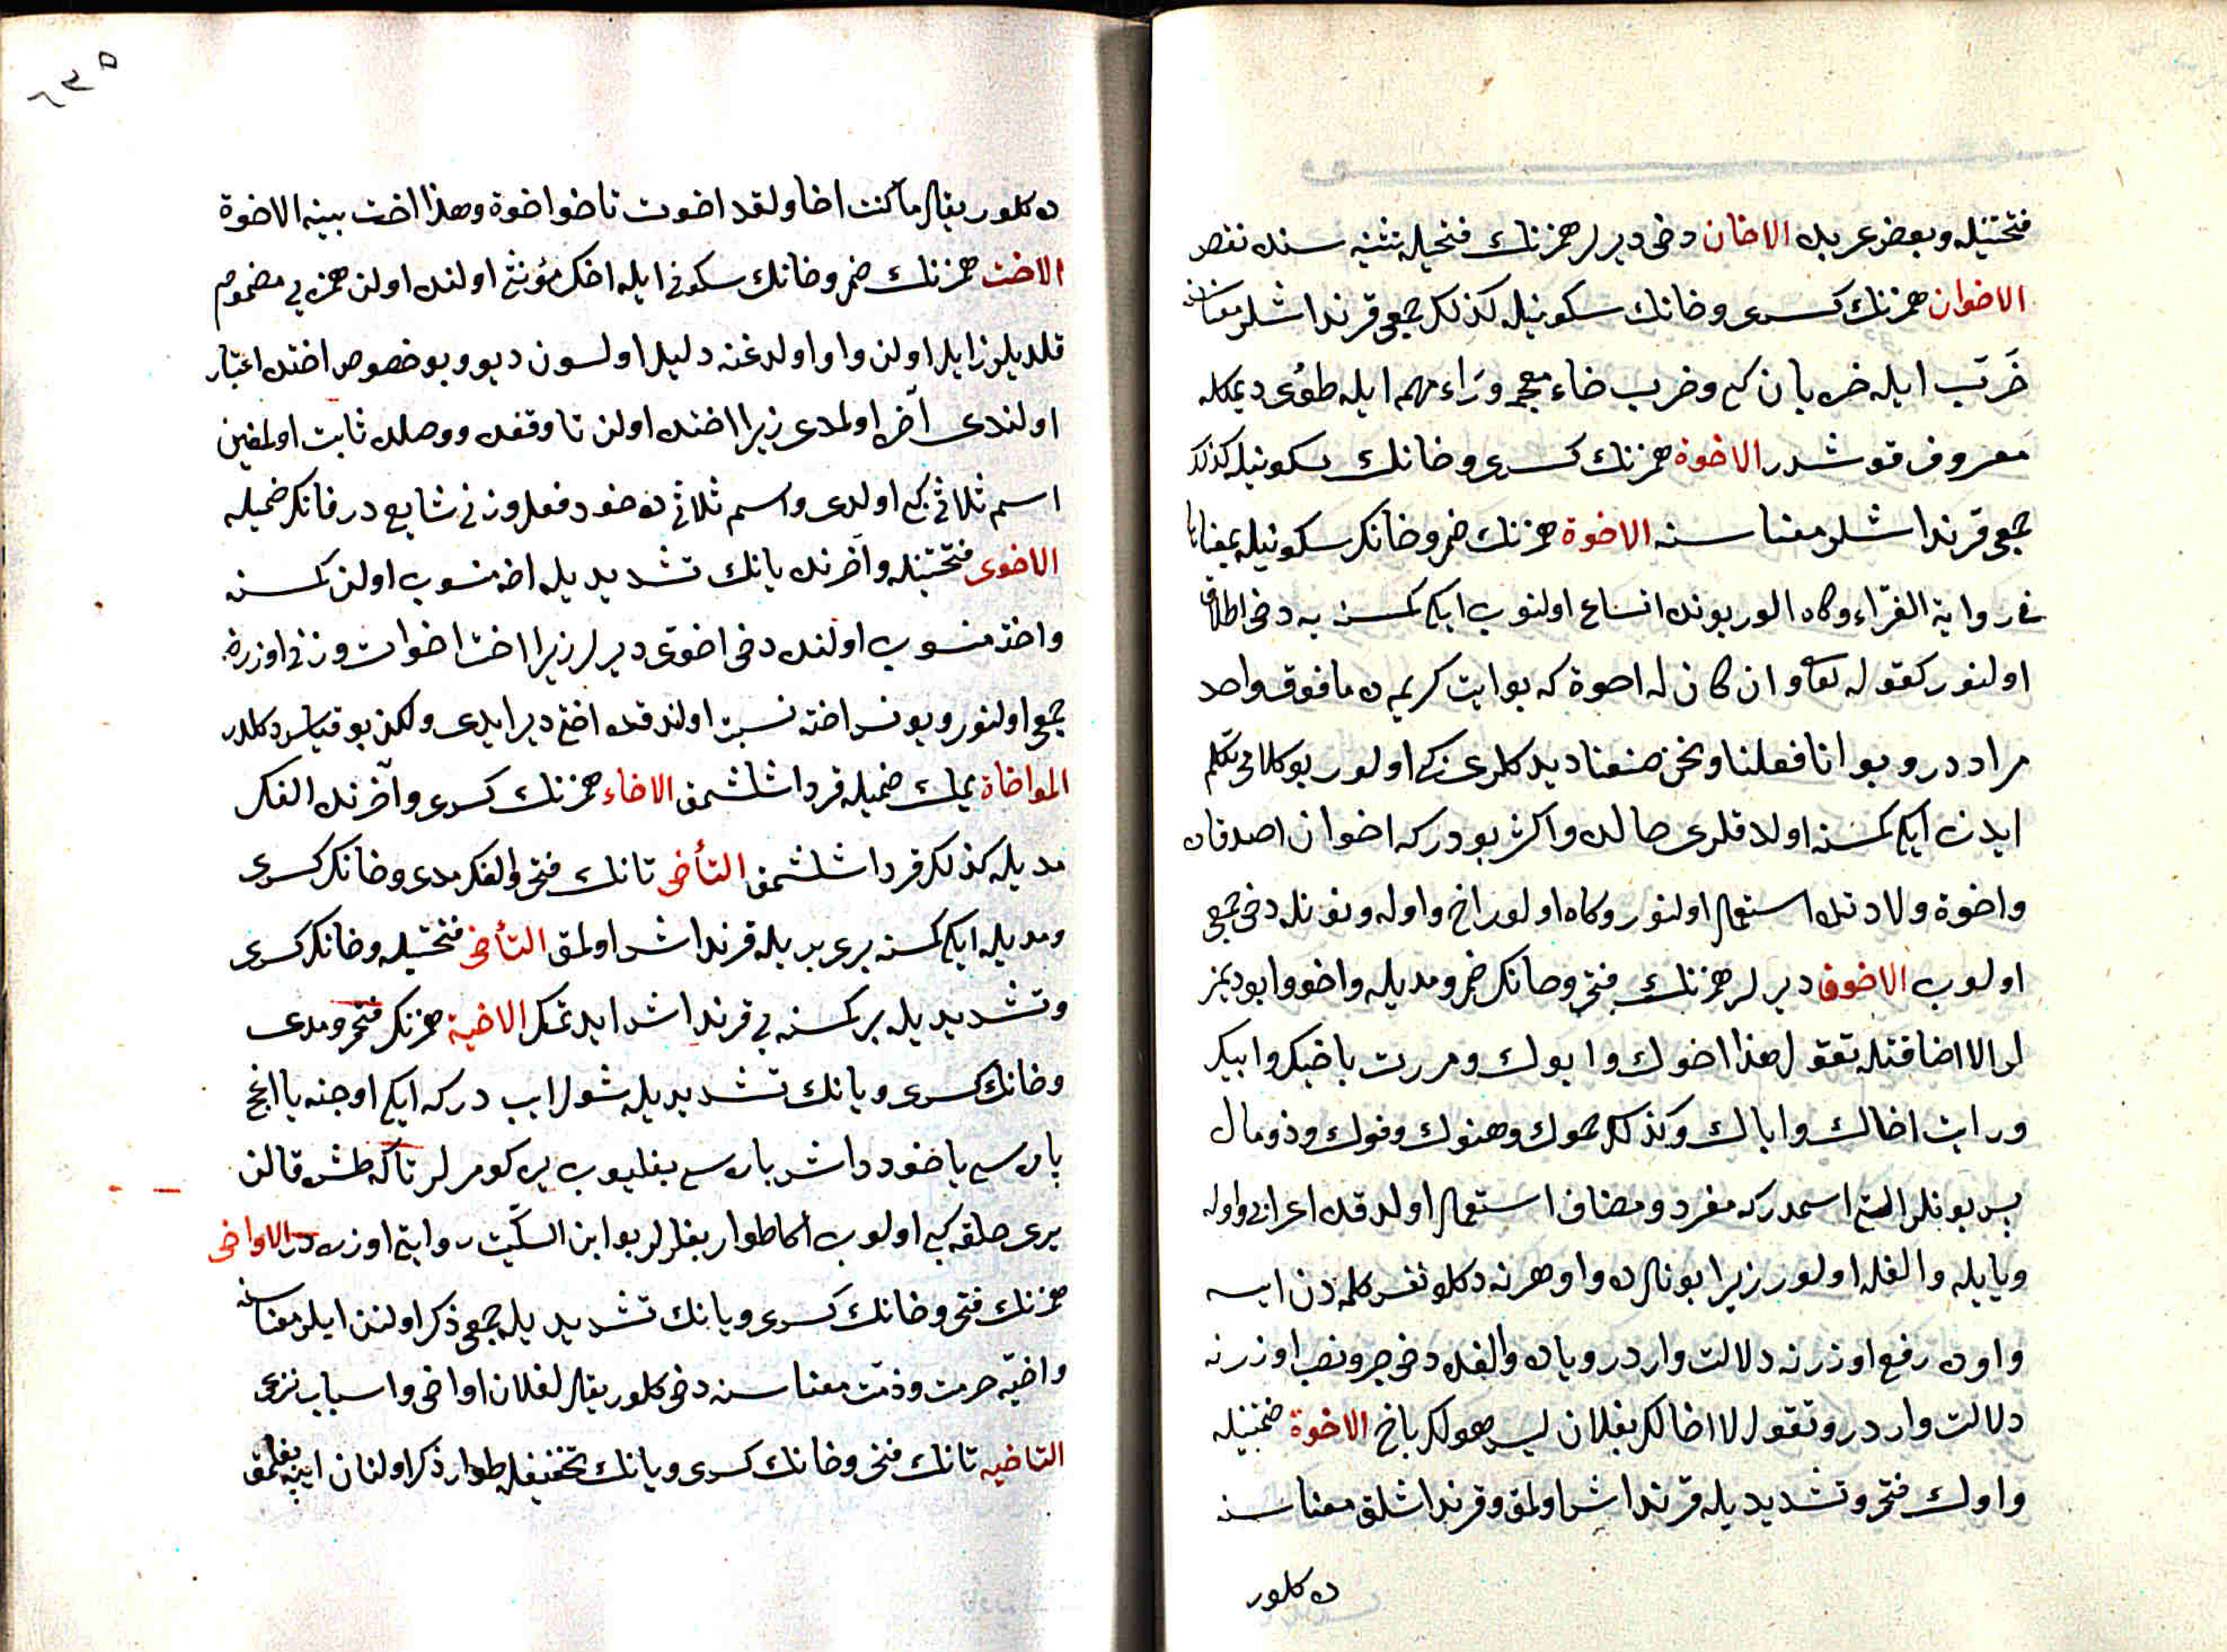 فتحتيله وبعض عربده الاخان دخی دیرلر همزنك فتحیله تثنیه سنده نقص
الاخوان همزنك کسری وخانك سکونیله کذلك جمعی قرنداشلر معناسنه
خَرَب ایله خربان کبی وخرب خاء معجمه وراء مهمله ایله طوی دیمکله
معروف قوشدر الاخوة همزنك کسری وخانك سکونیله کذلك
جمعی قرنداشلر معناسنه الاخوة همزنك ضم وخانك سکونیله بمعناها
فی روایة الفرّاء وکاه الور بونده اتساع اولنوب ایکی کمسنه یه دخی اطلاق
اولنور کقوله تعالی وان کان له اخوة که بو ایت کریمه ده مافوق واحد
مراددر وبو انا فعلنا ونحن صنعنا دیدکلری کبی اولور بو کلامی تکلم
ایدن ایکی کمسنه اولدقلری حالده واکثر بودرکه اخوان اصدقاده
واخوة ولادتده استعمال اولنور وکاه اولور اخ واوله ونونله دخی جمعی
اولوب الاخون دیرلر همزنك فتحی وخانك ضم ومدیله واخو وابو دیمز
لر الا اضافتله تقول هذا اخوك وابوك ومررت باخیك وابیك
ورایت اخاك واباك وکذلك حموك وهنوك وفوك وذو مال
پس بونلر التی اسمدرکه مفرد ومضاف استعمال اولدقده اعرابی واوله
ویایله والفله اولور زیرا بونلرده واو هرنه دکلو نفس کلمه دن ایسه
واوده رفع اوزرنه دلالت واردر ویاده والفده دخی جر ونصب اوزرنه
دلالت واردر وتقول لا اخا لك بفلان لیس هو لك باخ الاخوة ضمتیله
واوك فتح وتشدیدیله قرنداش اولمق وقرنداشلق معناسنه
ده کلور
٦٣٥
ده کلور یقال ما کنت اخا ولقد اخوت تاخو اخوة وهذا اخت بینة الاخوة
الاخت همزنك ضم وخانك سکونی ایله اخك مؤنثی اولنده اولن همزه یی مضموم
قلدیلر زایل اولن واو اولدغنه دلیل اولسون دیو وبو خصوص اختده اعتبار
اولندی آخر اولمدی زیرا اختده اولن تا وقفده ووصلده ثابت اولمغین
اسم ثلاثی کبی اولدی واسم ثلاثی ده خود فعل وزنی شایع در فانك ضمیله
الاخوی فتحتیله وآخرنده یانك تشدیدیله اخه منسوب اولن کمسنه
واخته منسوب اولنده دخی اخوی دیرلر زیرا اخت اخوات وزنی اوزره
جمعی اولنور ویونس اخته نسبت اولندقده اختی دیر ایدی ولکن بو قیاس دکلدر
المواخاة میمك ضمیله قرداشلشمق الاخاء همزنك کسری وآخرنده الفك
مدیله کذلك قرداشلشمق التأخی تانك فتحی والفك مدی وخانك کسری
ومدیله ایکی کمسنه بری بریله قرنداش اولمق التأخی فتحتیله وخانك کسری
وتشدیدیله بر کمسنه یی قرنداش ایدنمك الاخیة همزنك فتح ومدی
وخانك کسری ویانك تشدیدیله شول ایب درکه ایکی اوجنه یا اغج
پاره سی یا خود داش پاره سی بغلیوب یره کومرلر تاکه طشره قالن
یری حلقه کبی اولوب اکا طوار بغلرلر بو ابن السکّیت روایتی اوزره در الاواخی
همزنك فتحی وخانك کسری ویانك تشدیدیله جمعی ذکر اولنن ایلر معناسنه
واخیّه حرمت وذمّت معناسنه دخی کلور یقال لفلان اواخی واسباب نرعی
التاخیه تانك فتحی وخانك کسری ویانك تخفیفله طوار ذکر اولنان ایپه بغلمق